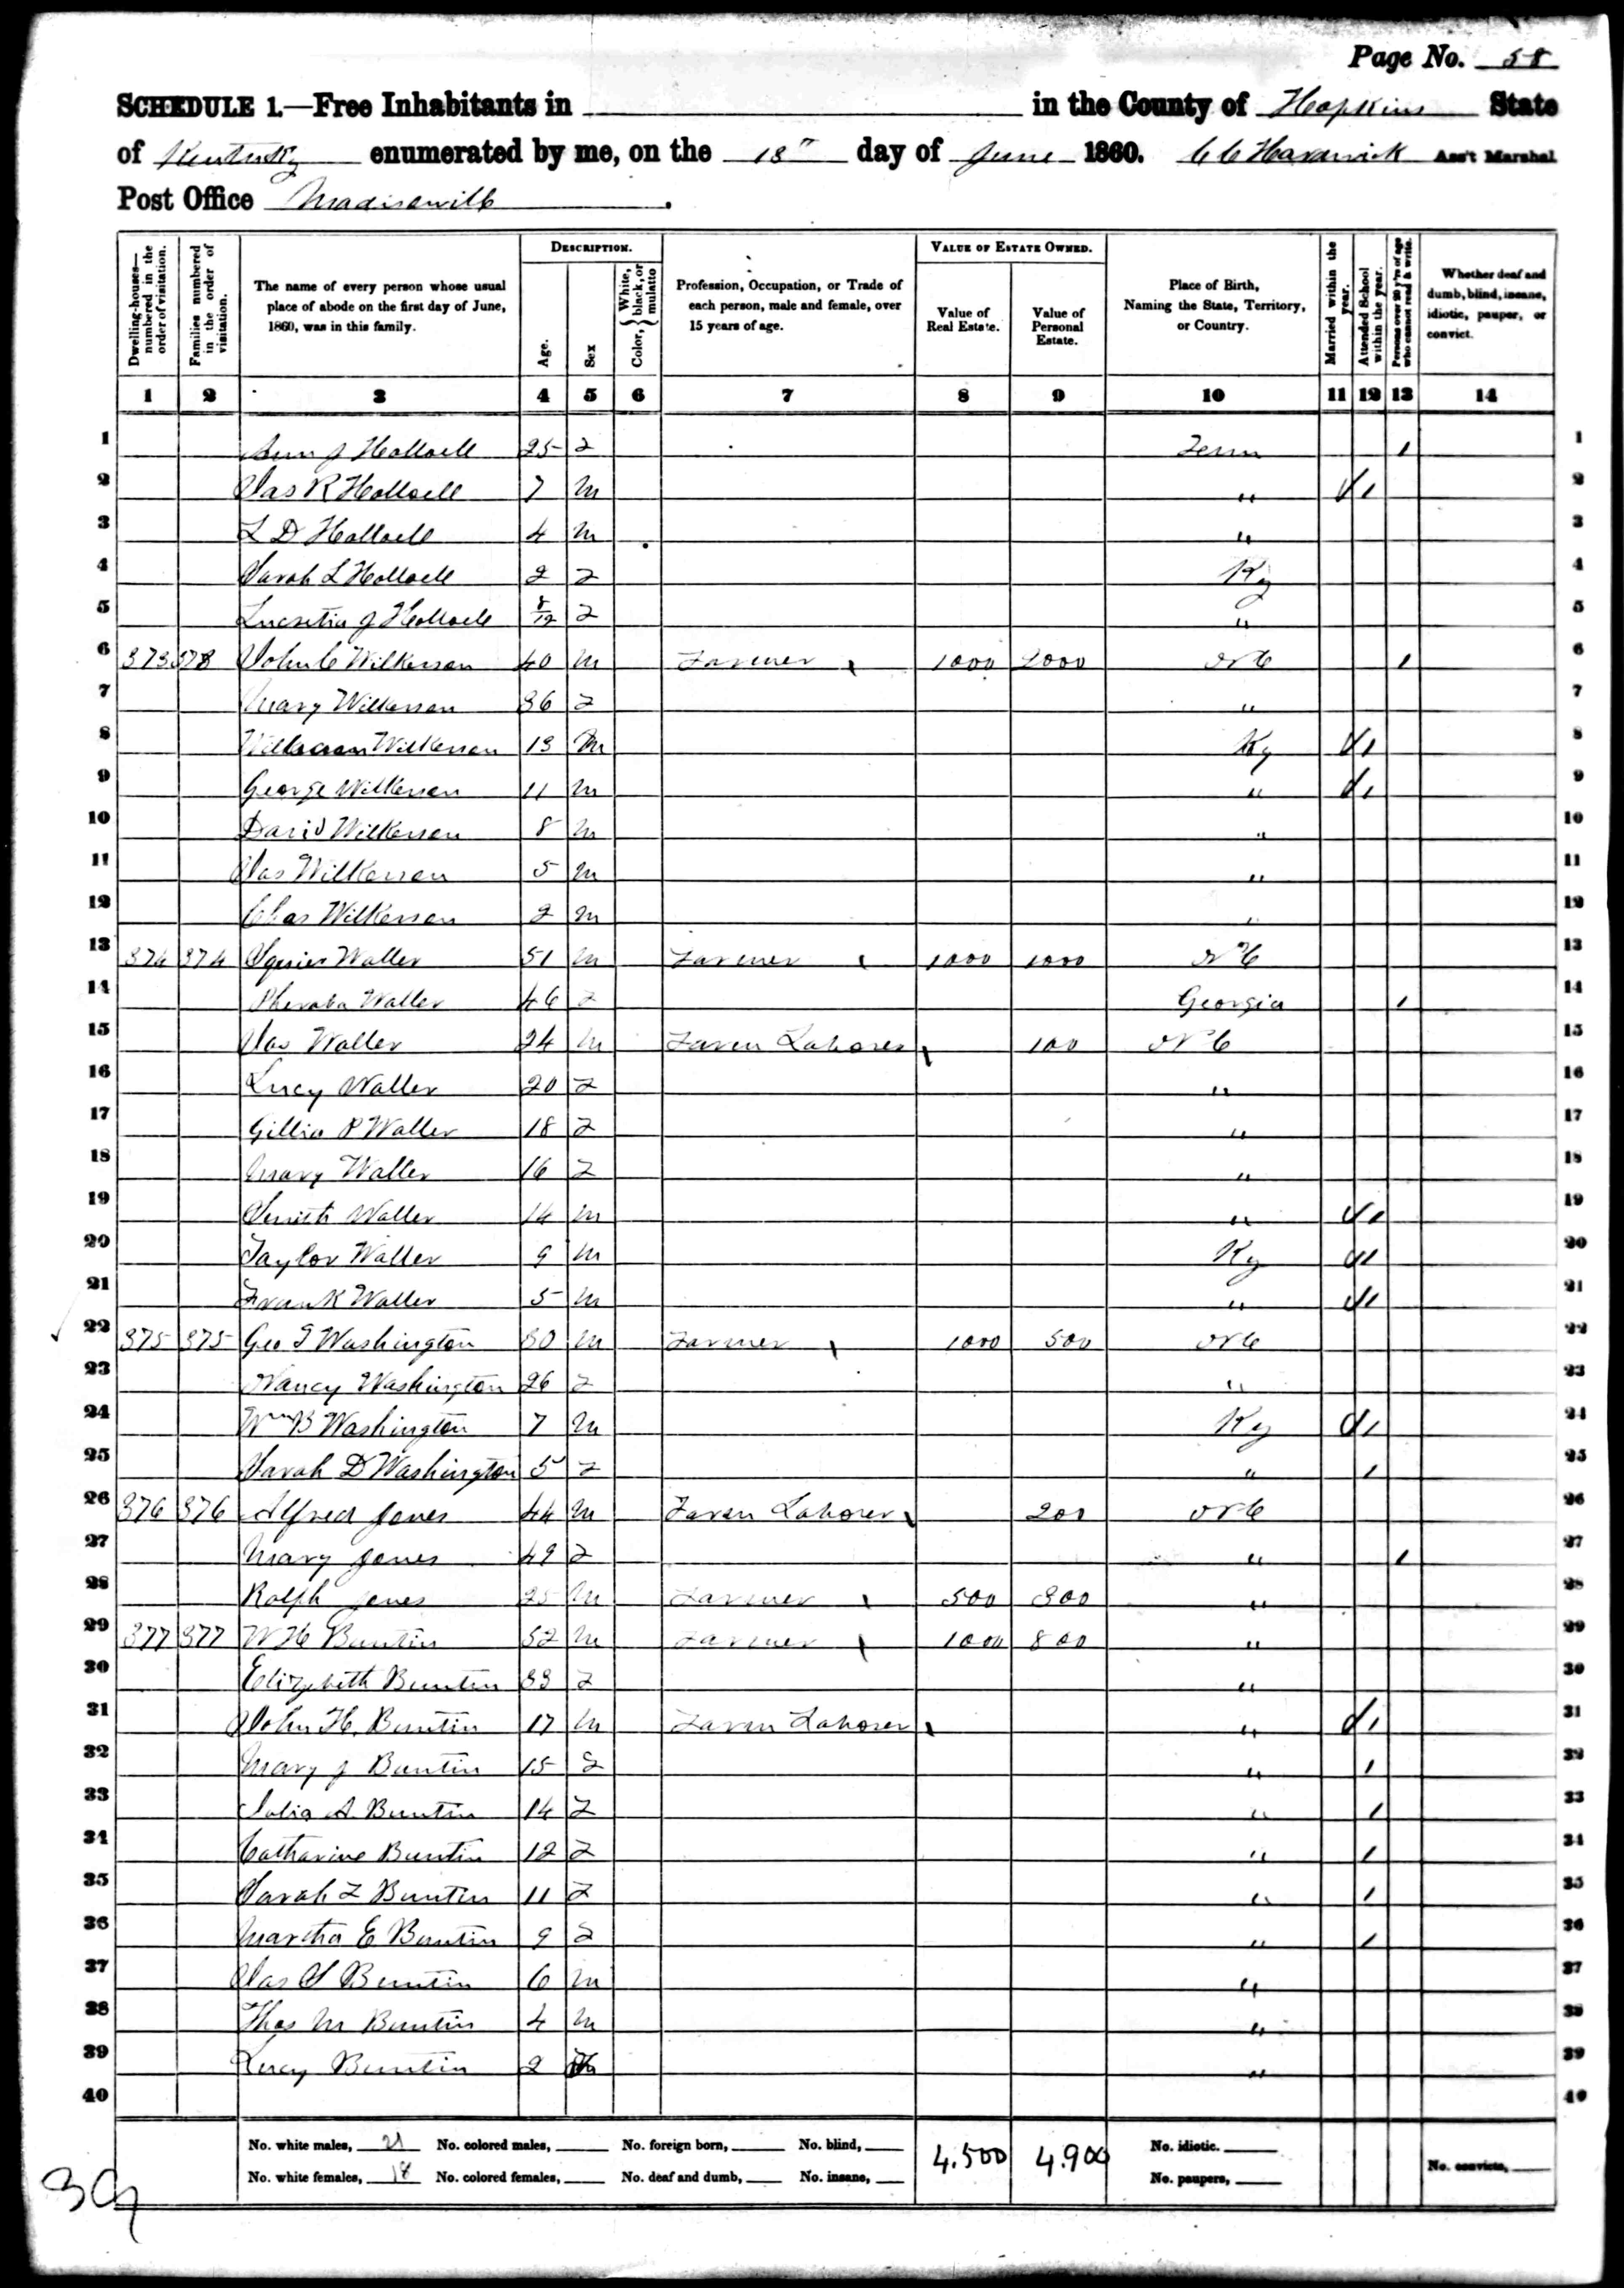 Page No. 58
SCHEDULE 1.—Free Inhabitants in in the County of Hopkins State
of Kentucky enumerated by me, on the 18" day of June 1860. C C Ass't Marshal
Post Office Madisonville.
DESCRIPTION. VALUE OF ESTATE OWNED.
Dwelling-houses—numbered in the order of visitation. Families numbered in the order of visitation. The name of every person whose usual place of abode on the first day of June, 1860, was in this family. Age. Sex Color, { White, black, or mulatto Profession, Occupation, or Trade of each person, male and female, over 15 years of age. Value of Real Estate. Value of Personal Estate. Place of Birth, Naming the State, Territory, or Country. Married within the year. Attended School within the year. Persons over 20 y'rs of age who cannot read & write. Whether deaf and dumb, blind, insane, idiotic, pauper, or convict.
1 2 3 4 5 6 7 8 9 10 11 12 13 14
1 J 25 F Tenn / 1
2 Jas R 7 M " / 2
3 L D 4 M " 3
4 Sarah L 2 F Ky 4
5 Lucretia J 8/12 F " 5
6 373 373 John C Wilkerson 40 M Farmer 1000 2000 N C / 6
7 Mary Wilkerson 36 F " 7
8 William Wilkerson 13 M Ky / 8
9 George Wilkerson 11 M " / 9
10 David Wilkerson 8 M " 10
11 Jas Wilkerson 5 M " 11
12 Chas Wilkerson 2 M " 12
13 374 374 Waller 51 M Farmer 1000 1000 N C 13
14 Waller 46 F Georgia / 14
15 Jas Waller 24 M Farm Laborer 100 N C 15
16 Lucy Waller 20 F " 16
17 Gillia P Waller 18 F " 17
18 Mary Waller 16 F " 18
19 Smith Waller 14 M " / 19
20 Taylor Waller 9 M Ky / 20
21 Frank Waller 5 M " / 21
22 375 375 Geo T Washington 30 M Farmer 1000 500 N C 22
23 Nancy Washington 26 F " 23
24 Wm B Washington 7 M Ky / 24
25 Sarah D Washington 5 F " / 25
26 376 376 Alfred Jones 44 M Farm Laborer 200 N C 26
27 Mary Jones 49 F " / 27
28 Ralph Jones 25 M Farmer 500 300 " 28
29 377 377 W H Buntin 52 M Farmer 1000 800 " 29
30 Elizabeth Buntin 33 F " 30
31 John H. Buntin 17 M Farm Laborer " / 31
32 Mary J Buntin 15 F " / 32
33 Julia A. Buntin 14 F " / 33
34 Catharine Buntin 12 F " / 34
35 Sarah F Buntin 11 F " / 35
36 Martha E Buntin 9 F " / 36
37 Jas S Buntin 6 M " 37
38 Thos M Buntin 4 M " 38
39 Lucy Buntin 2 " 39
40 40
No. white males, 21 No. colored males, No. foreign born, No. blind, 4.500 4.900 No. idiotic.
No. white females, 18 No. colored females, No. deaf and dumb, No. insane, No. paupers, No. convicts,
39